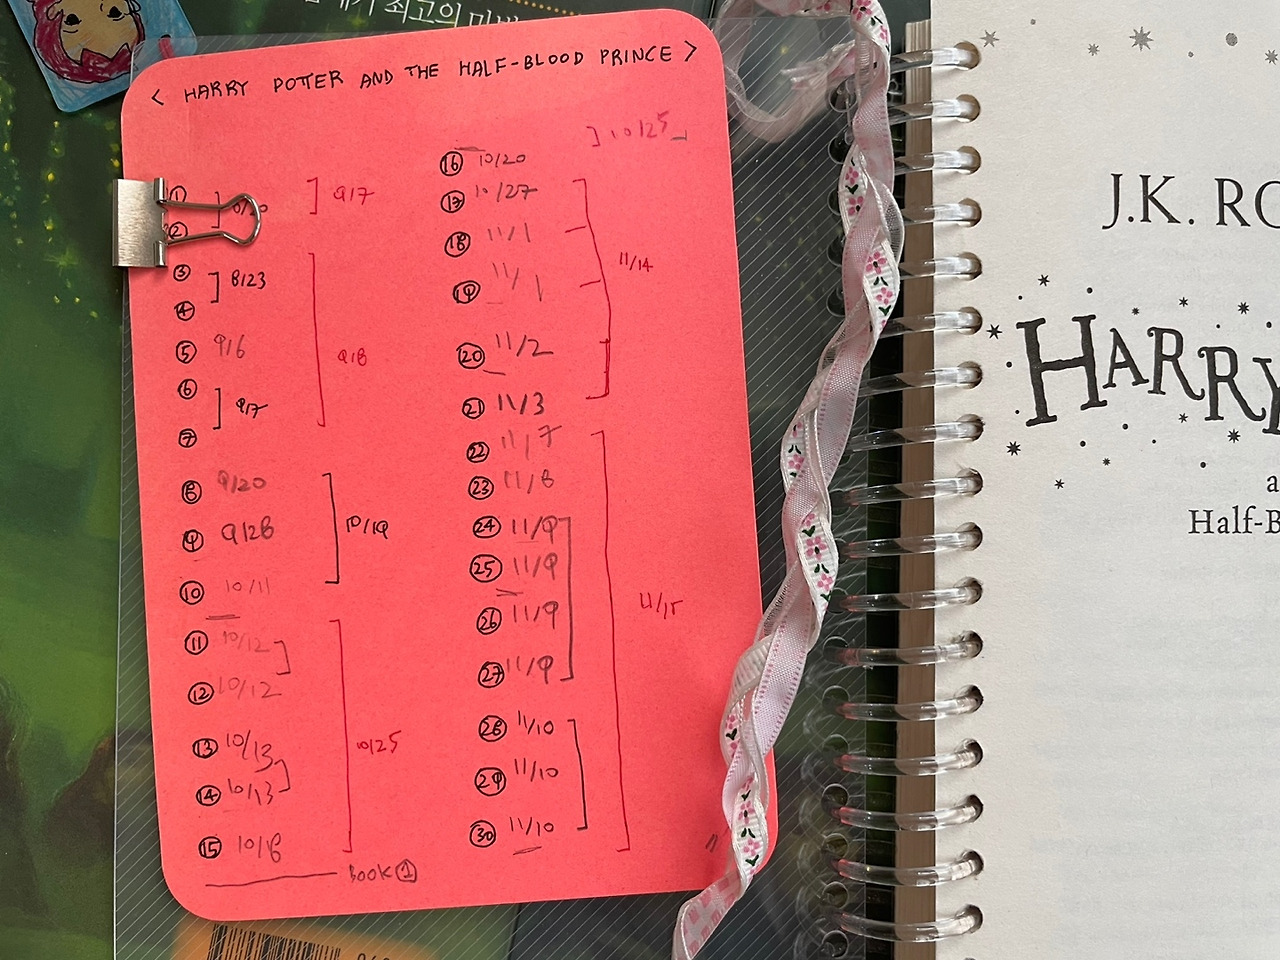 최고의 마법
< HARRY POTTER AND THE HALF-BLOOD PRINCE >
① ] ] 9/7
②
③ ] 8/23 ] 9/8
④
⑤ 9/6
⑥ ] 9/7
⑦
⑧ 9/20 ] 10/19
⑨ 9/28
⑩ 10/11
⑪ 10/12 ] ] 10/25
⑫ 10/12
⑬ 10/13 ]
⑭ 10/13
⑮ 10/18
BOOK ①
] 10/25
⑯ 10/20
⑰ 10/27 ] 11/14
⑱ 11/1
⑲ 11/1
⑳ 11/2
㉑ 11/3
㉒ 11/7 ] 11/15
㉓ 11/8
㉔ 11/9 ]
㉕ 11/9
㉖ 11/9
㉗ 11/9
㉘ 11/10 ]
㉙ 11/10
㉚ 11/10
J.K. RO
HARRY
a
Half-B